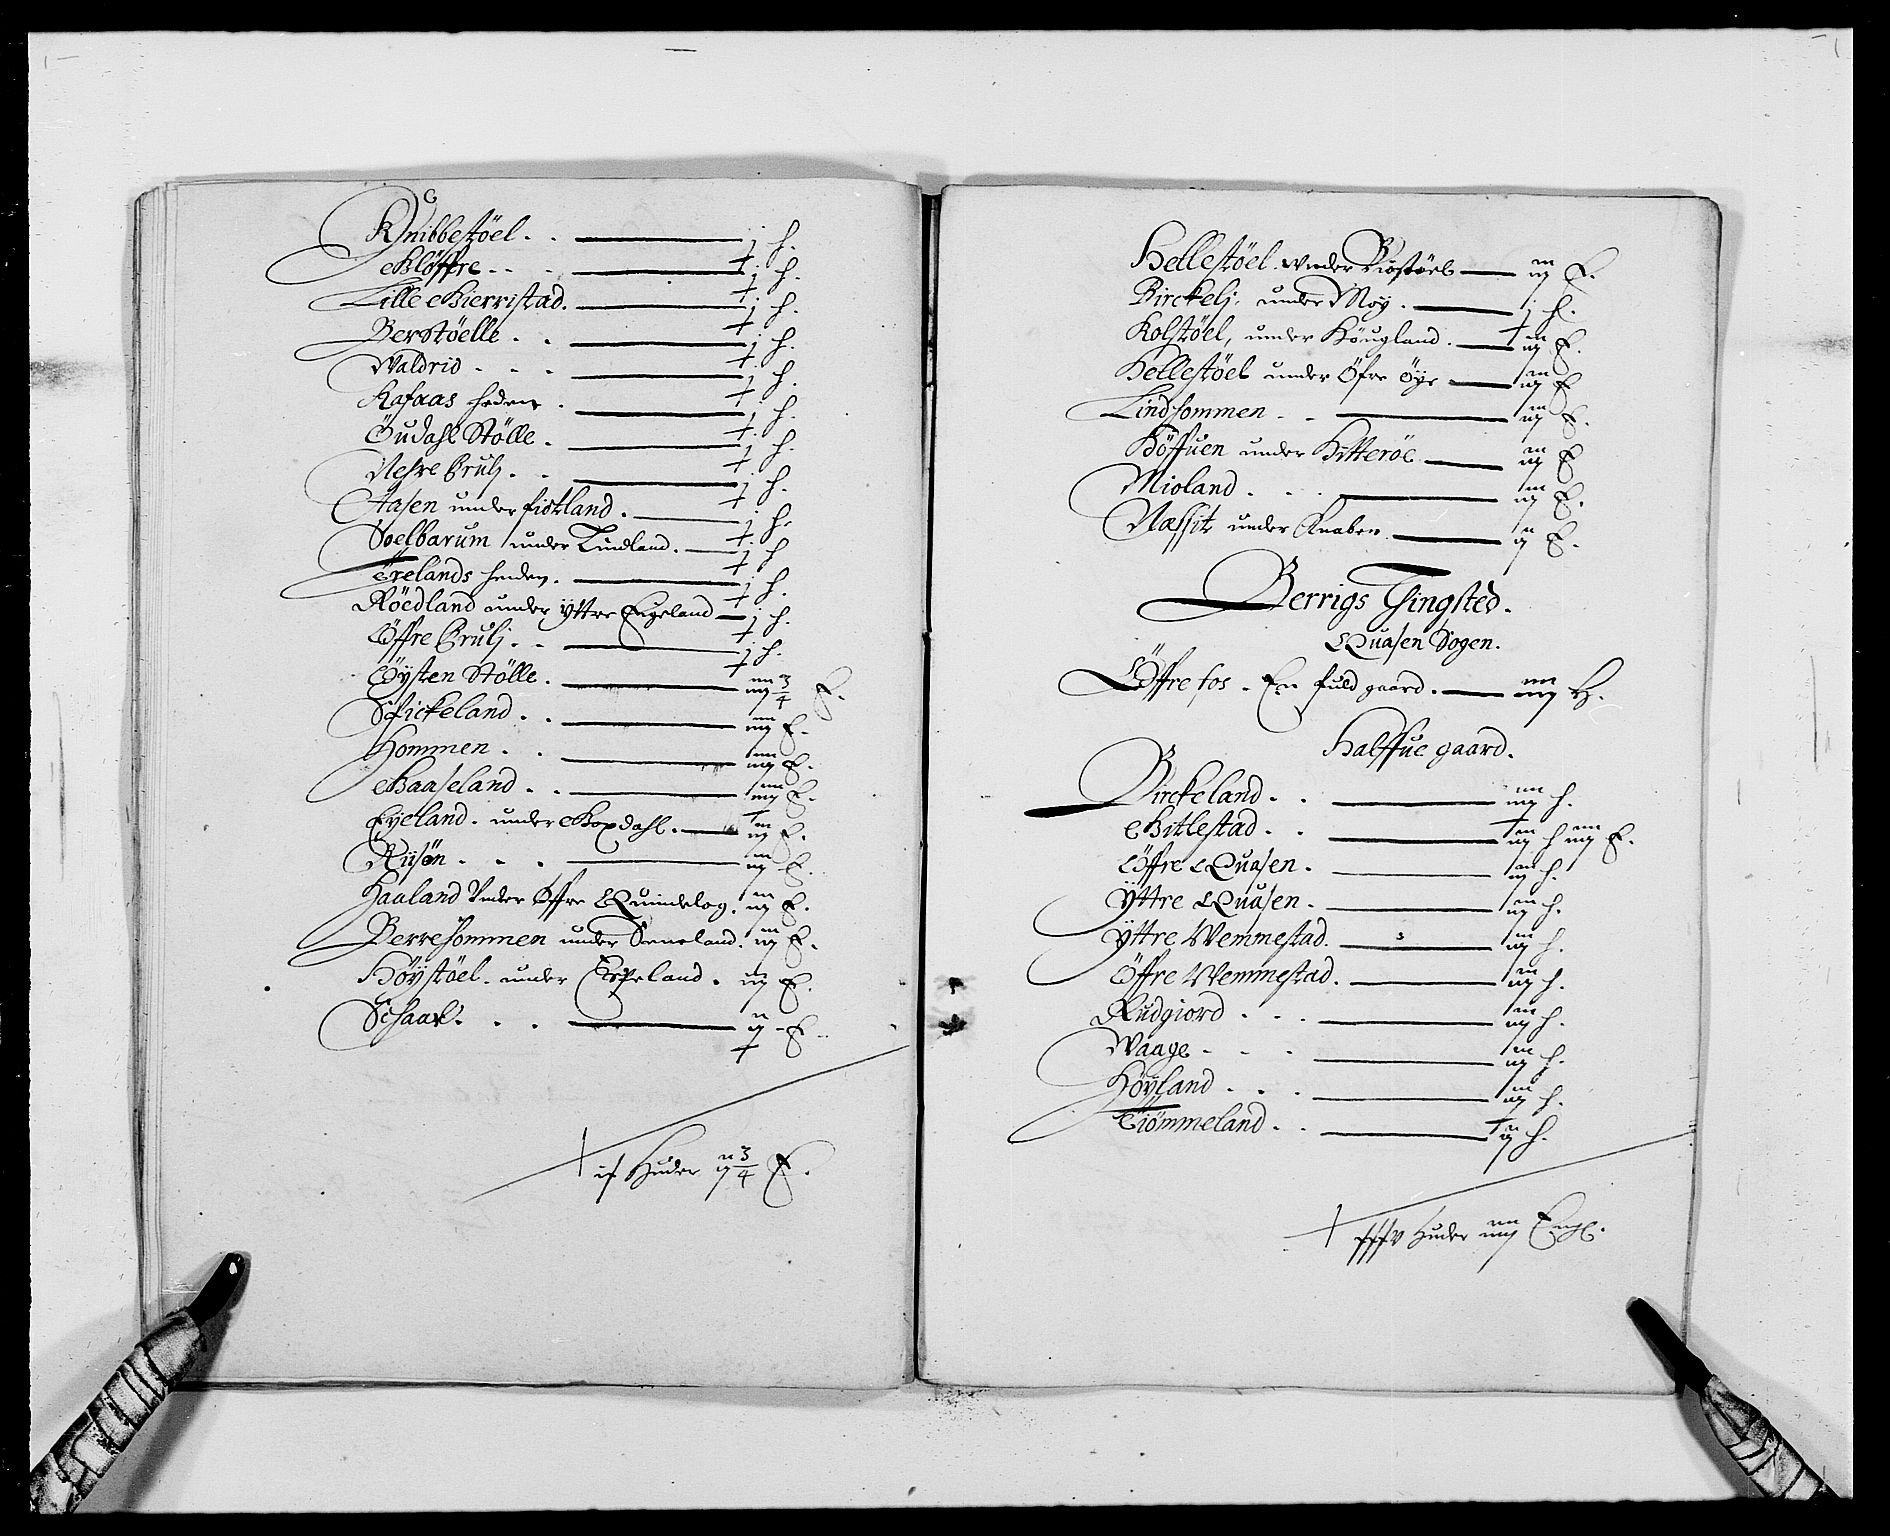 Knibbestöel. . j h.
Klöffre. . . j h.
Lille Kierristad. j h.
Berstöelle . . j h.
Waldrid . . . j h.
Rafaas heden . j h.
Öudahl Stölle . j h.
Nehre Brulj . . j h.
Aasen under fiotland . j h.
Soelbarum under Lindland. j h
Trelands heden . j h.
Röedland under Yttre Egeland j h.
Öffre Brulj . . j h.
Öysten Stölle . iiij 3/4 E.
Stickeland . . iiij E.
Hommen . . iiij E.
Haaseland . . iiij E.
Eyeland. under Kopdahl. iij E.
Riisön . . . iij E.
Haaland Under Öffre Quindelog. iij E.
Berrehommen under Seneland. iij E.
Höystöel. under Espeland. iij E.
Schaar. . . ij E.
Huder ij 3/4 E.
Hellestöel. under Riostöel iij E.
Birckelj, under Moy . j h.
Kolstöel, under Höugland. iij E.
Hellestöel under Öfre Öye iij E
Lindhommen . . iij E.
Höffuen under Hitteröe iij E
Mioland . . . iij E.
Næssit under Knaben ij E.
Berrigs Tingsted.
Quasen Sogen.
Öffre fos . En fuld gaard. iiij H.
Halffue gaard.
Birckeland . . iiij h.
Kitlestad . . iij h iiij E.
Öffre Quasen . iij h.
Yttre Quasen . iij h.
Yttre Wemmestad. iij h.
Öffre Wemmestad. iij h.
Rudgiord . . . iij h.
Waage . . . iij h.
Höyland . . . iij h.
Tiömmeland . . ij h.
Huder iiij Enge.